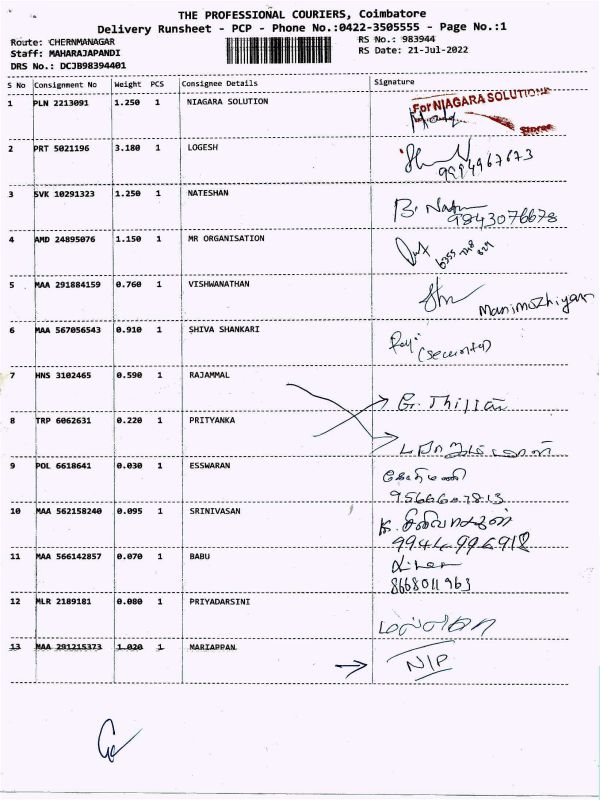 THE PROFESSIONAL COURIERS, Coimbatore
Delivery Runsheet - PCP - Phone No.:0422-3505555 - Page No.:1
Route: CHERNMANAGAR
RS No.: 983944
Staff: MAHARAJAPANDI
RS Date: 21-Jul-2022
DRS No.: DCJB98394401
S No Consignment No Weight PCS Consignee Details Signature
1 PLN 2213091 1.250 1 NIAGARA SOLUTION
For NIAGARA SOLUTIONS
Stores
2 PRT 5021196 3.180 1 LOGESH
9994967673
3 SVK 10291323 1.250 1 NATESHAN
B. Natn
9843076678
4 AMD 24895076 1.150 1 MR ORGANISATION
5 MAA 291884159 0.760 1 VISHWANATHAN
Manimozhiyan
6 MAA 567056543 0.910 1 SHIVA SHANKARI
(Security)
7 HNS 3102465 0.590 1 RAJAMMAL
8 TRP 6062631 0.220 1 PRITYANKA
9 POL 6618641 0.030 1 ESSWARAN
10 MAA 562158240 0.095 1 SRINIVASAN
11 MAA 566142857 0.070 1 BABU
8668011963
12 MLR 2189181 0.080 1 PRIYADARSINI
13 MAA 291215373 1.020 1 MARIAPPAN
NIP